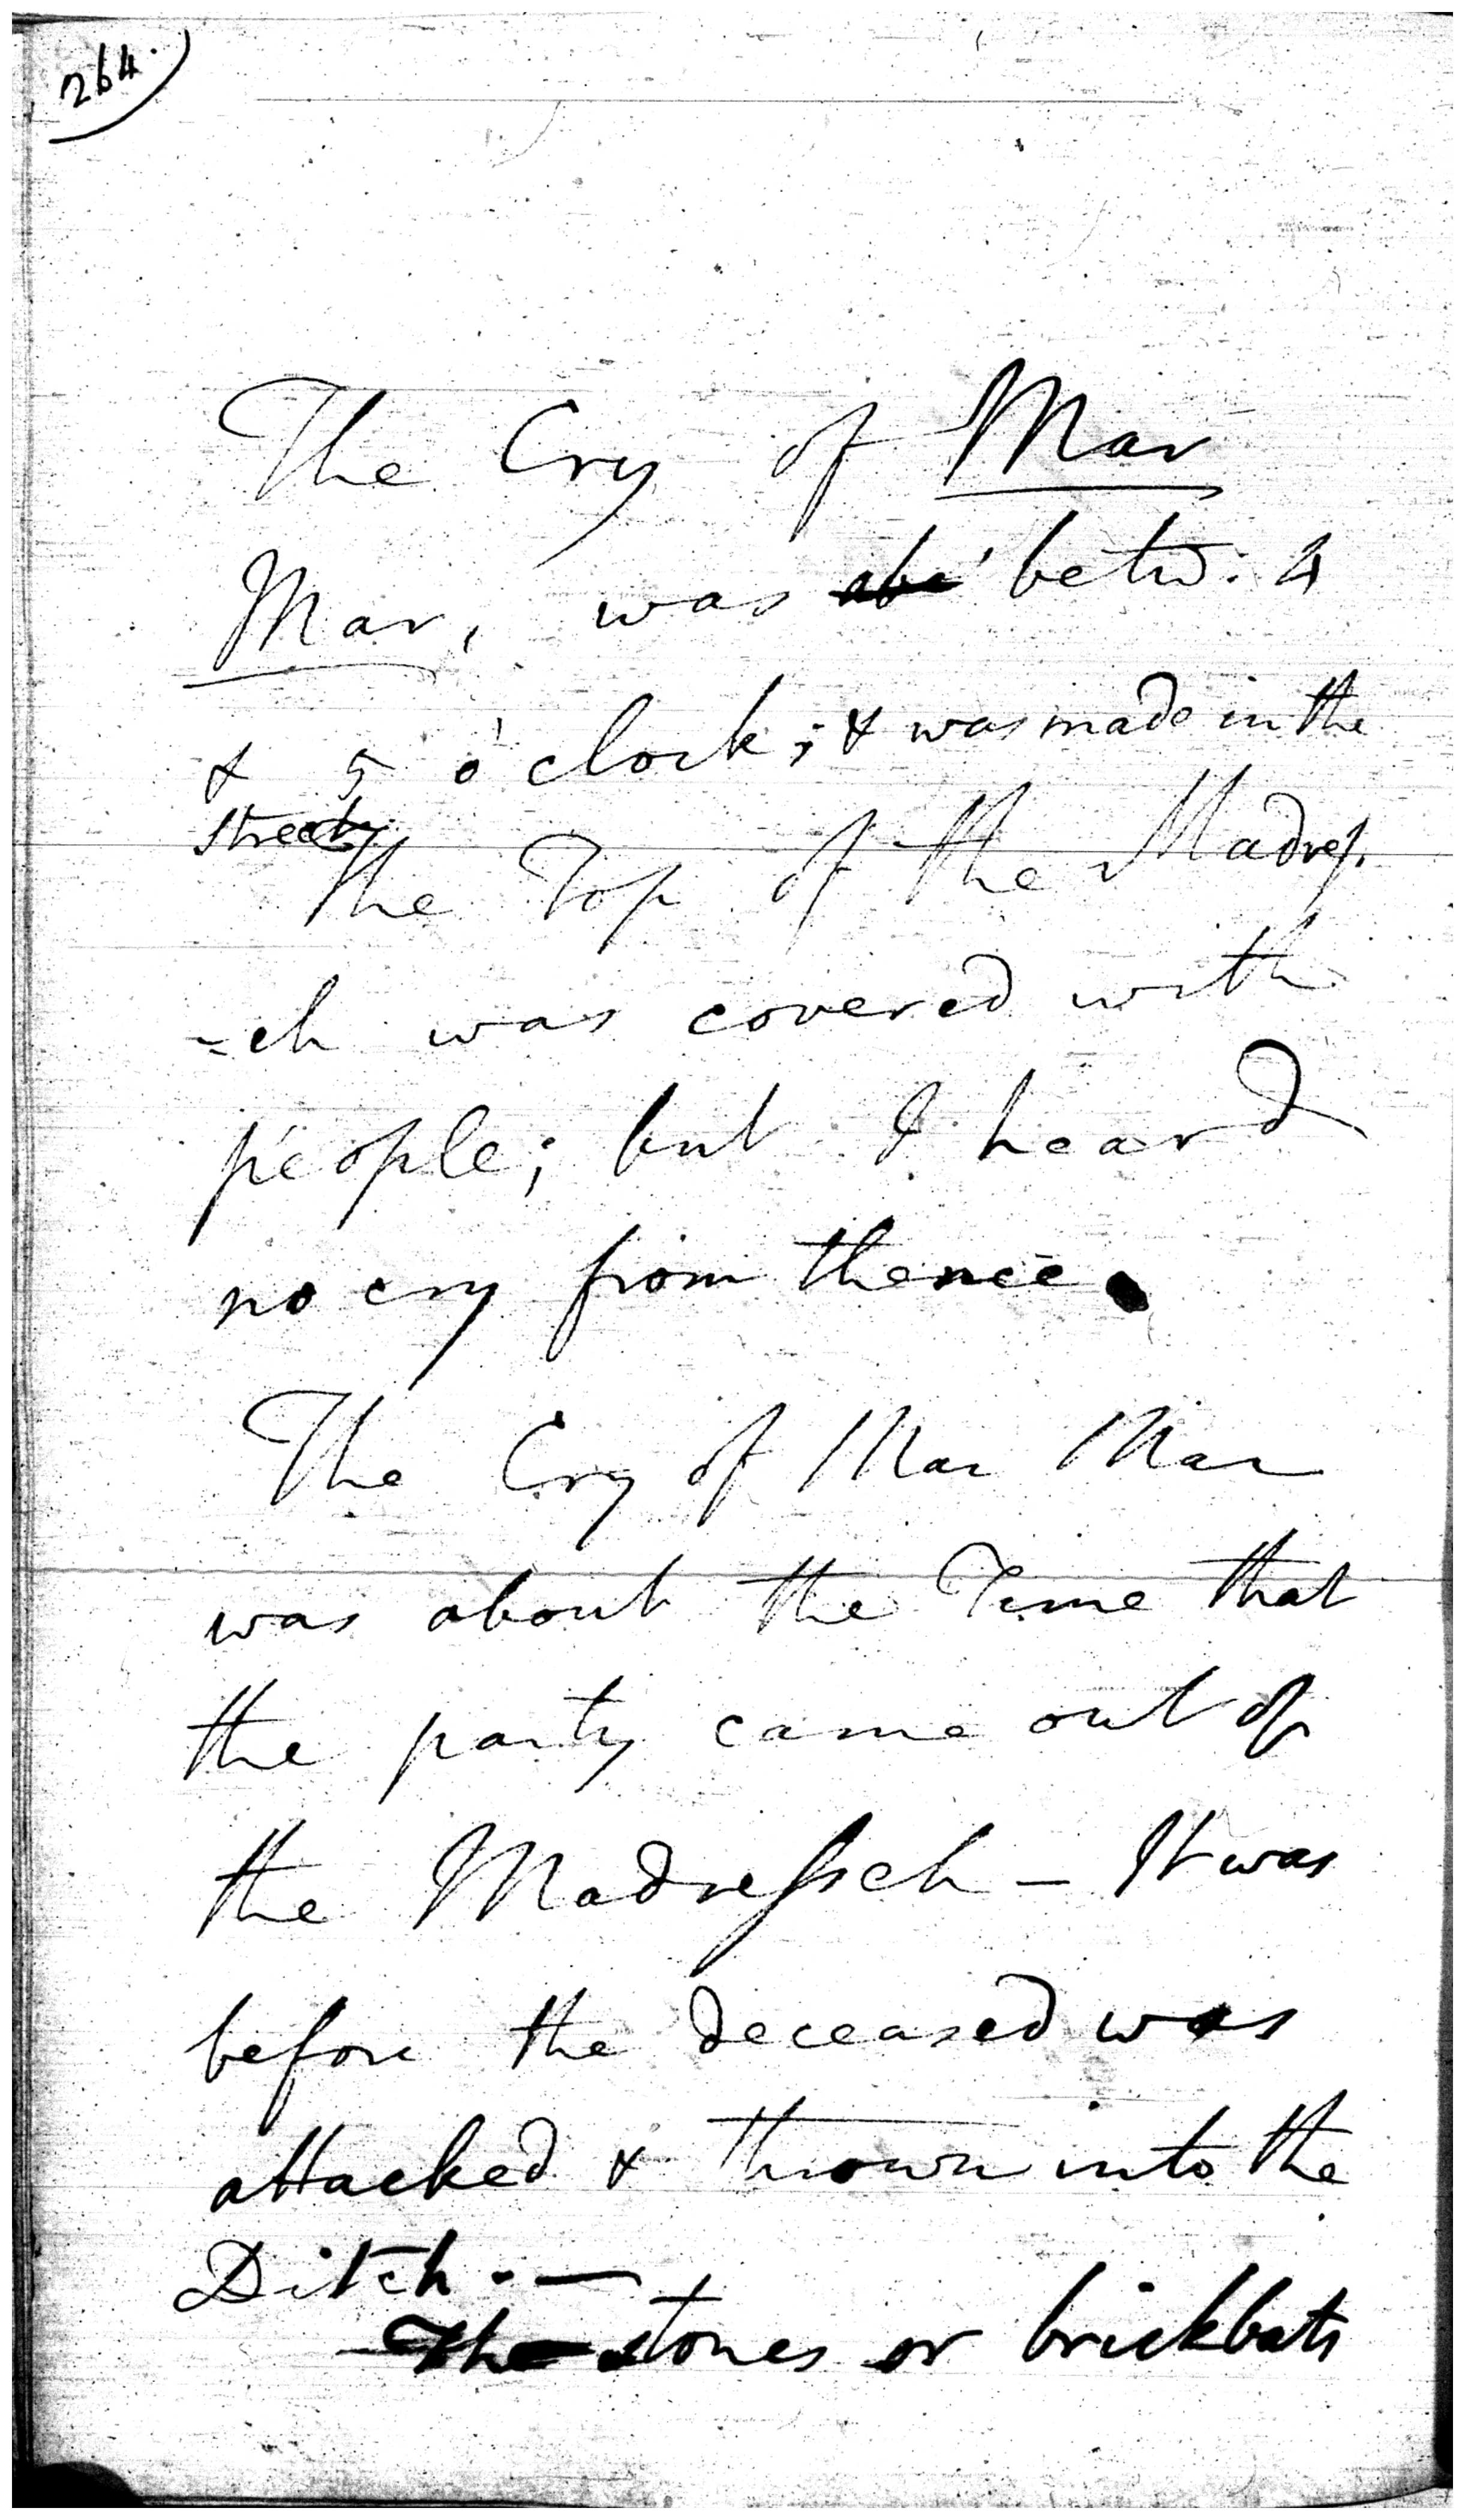 264.
The Cry of Mar
Mar, was abt betw: 4
& 5 o'clock; & was made in the
street.
The Top of the Madress
=eh was covered with
people; but I heard
no cry from thence.
The Cry of Mar Mar
was about the Time that
the party came out of
the Madresseh - It was
before the deceased was
attacked & thrown into the
Ditch. —
The stones or brickbats